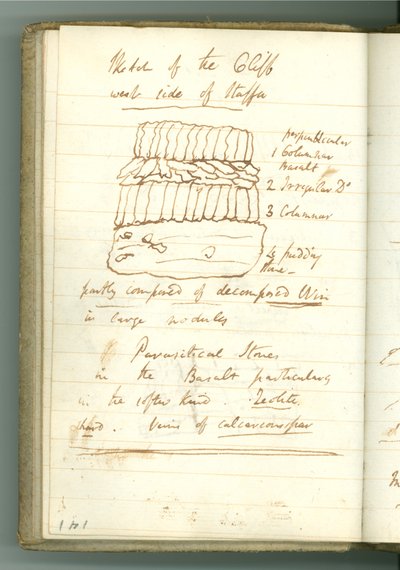 Sketch of the Cliff
west side of Staffa
perpendicular
1 Columnar
Basalt
2 Irregular Do
3 Columnar
4 pudding
stone -
partly composed of decomposed Win
in large nodules
Parasitical Stones
in the Basalt particularly
in the softer kind. Zeolite,
. Veins of calcareous spar